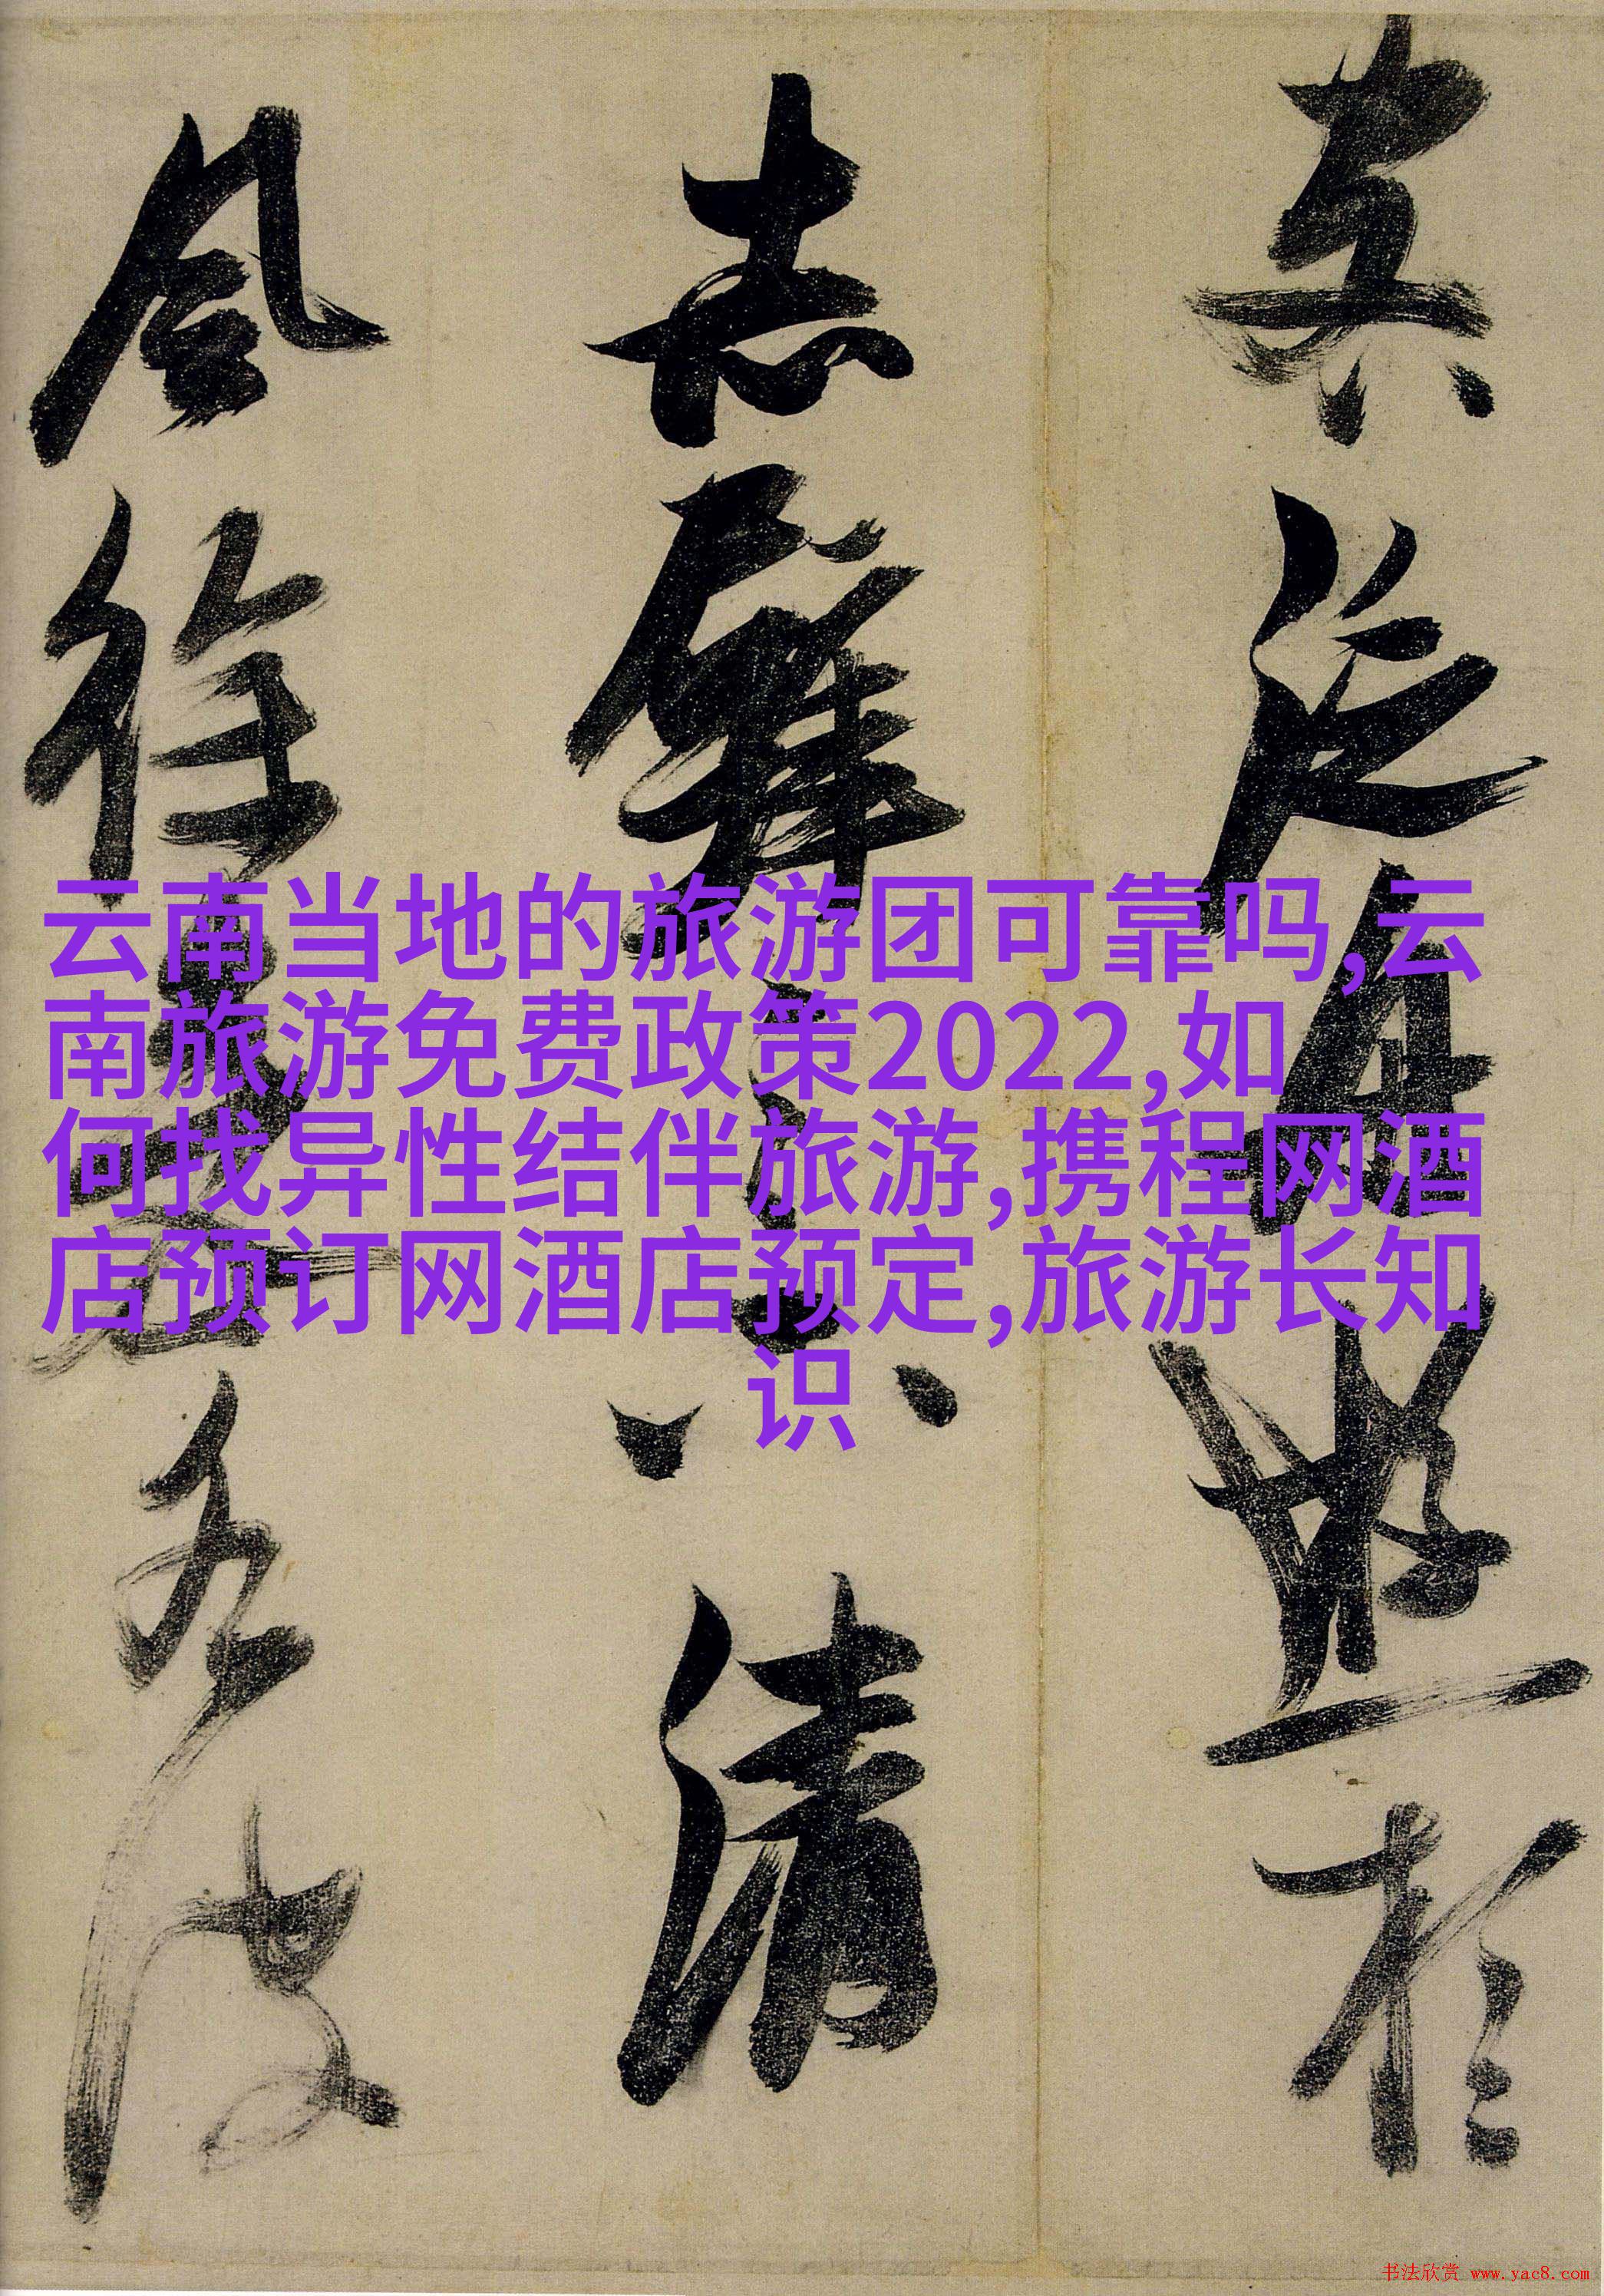 泛舟遊於
赤壁之下清
風徐來水波
云南当地的旅游团可靠吗,云
南旅游免费政策2022,如
何找异性结伴旅游,携程网酒
店预订网酒店预定,旅游长知
识
书法欣赏 www.yac8.com